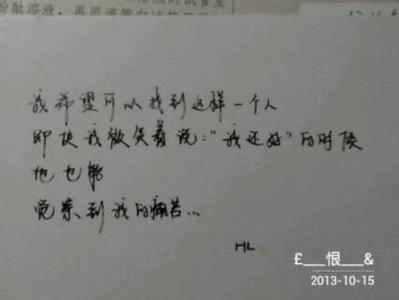 粉散溶液，再用滴管
我希望可以找到这样一个人
即使我微笑着说:"我还好"的时候
他也能
觉察到我的痛苦...
HL
£___恨___&
2013-10-15